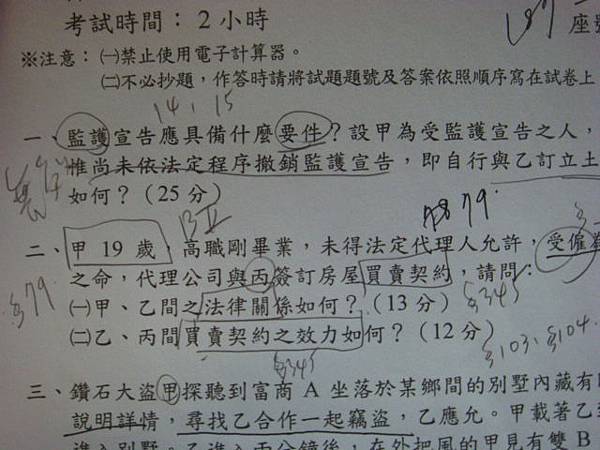 考試時間：2 小時
座號
※注意：㈠禁止使用電子計算器。
㈡不必抄題，作答時請將試題題號及答案依照順序寫在試卷上
14、15
一、監護宣告應具備什麼要件？設甲為受監護宣告之人，
惟尚未依法定程序撤銷監護宣告，即自行與乙訂立土
如何？（25 分）
13 II
§79
二、甲 19 歲，高職剛畢業，未得法定代理人允許，受僱為
之命，代理公司與丙簽訂房屋買賣契約，請問：
§79
㈠甲、乙間之法律關係如何？（13 分）
§345
㈡乙、丙間買賣契約之效力如何？（12 分）
§345
§103、§104
三、鑽石大盜甲探聽到富商 A 坐落於某鄉間的別墅內藏有
說明詳情，尋找乙合作一起竊盜，乙應允。甲載著乙
進入別墅。乙進入兩分鐘後，在外把風的甲見有雙 B